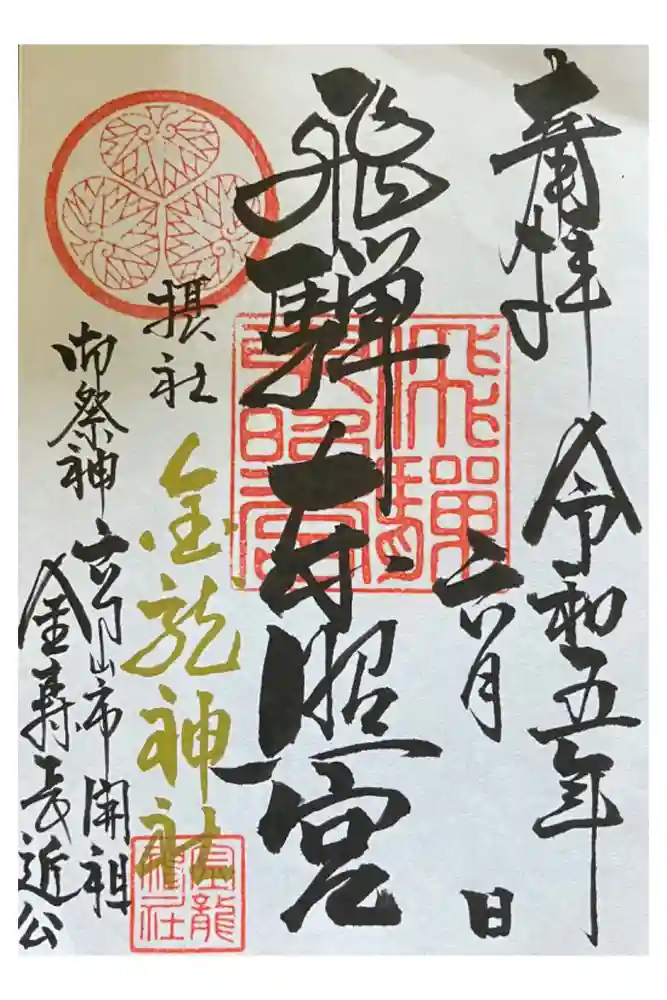 奉拝
令和五年
六月
日
飛騨東照宮
飛騨
東照宮
摂社
金龍神社
金龍
龍社
御祭神
高山市開祖
金森長近公